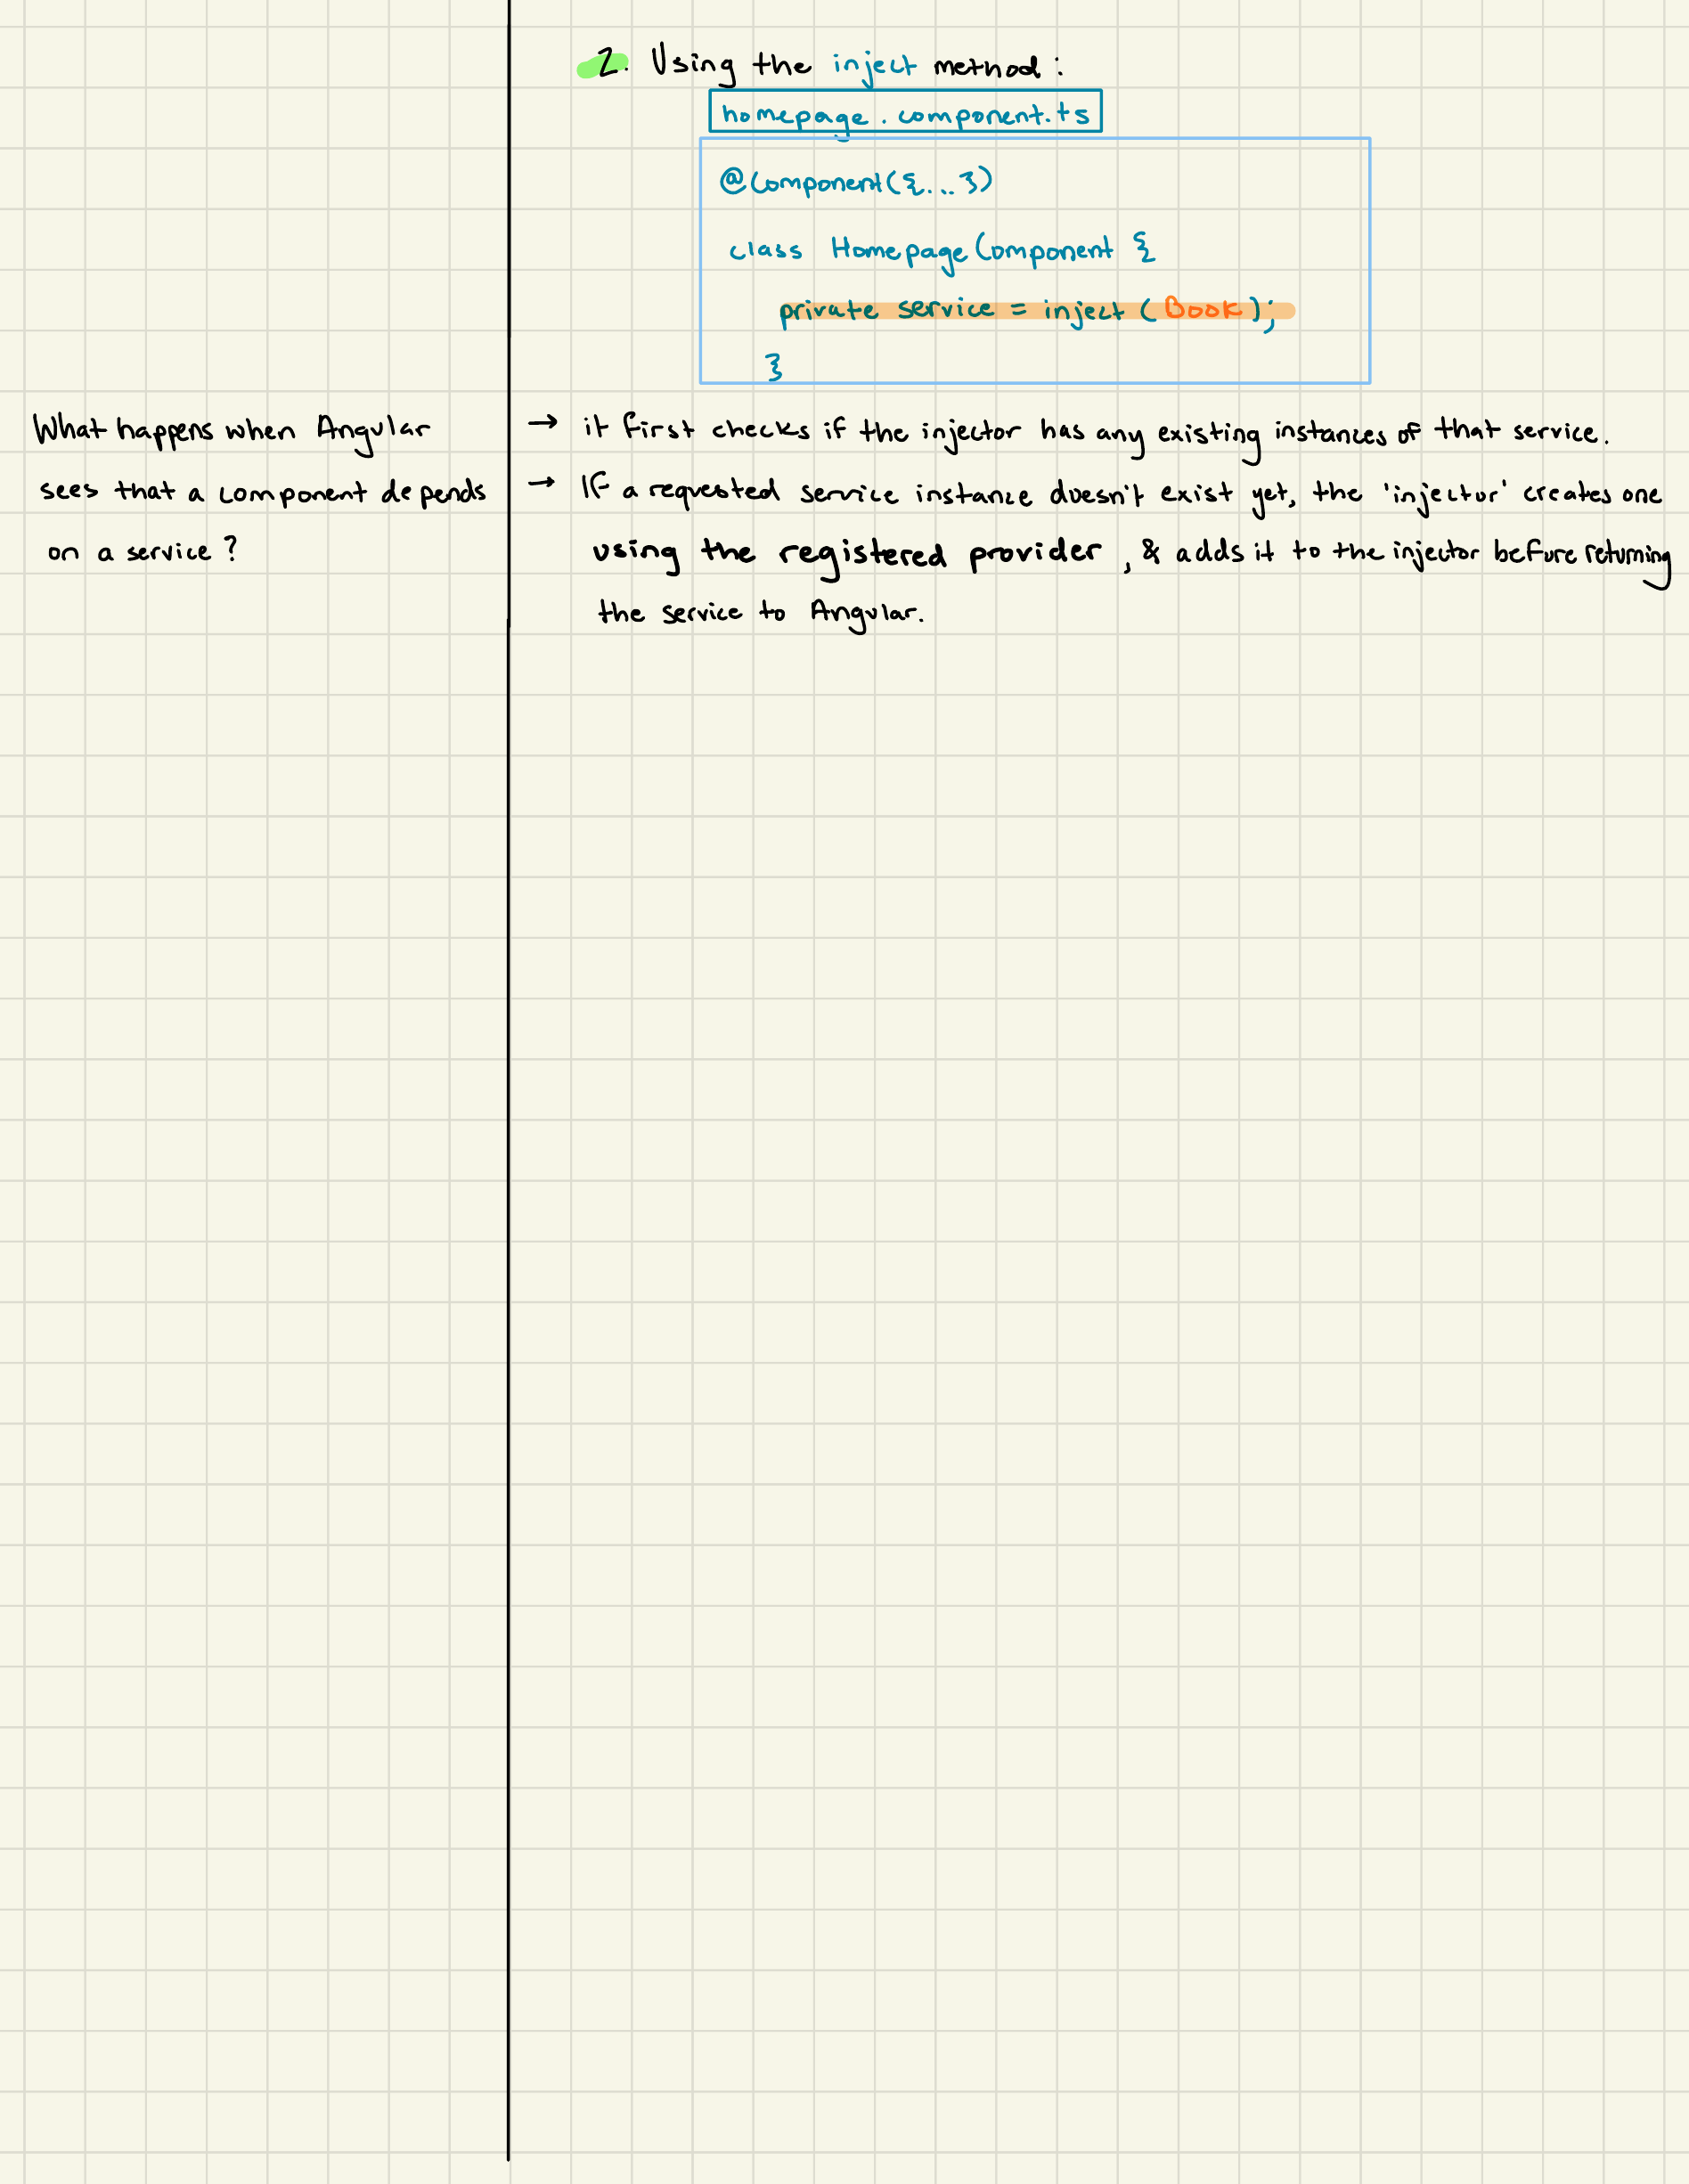 2. Using the inject method :
homepage.component.ts
@Component({...})
class HomepageComponent {
private service = inject (Book);
}
What happens when Angular
sees that a component depends
on a service?
→ it first checks if the injector has any existing instances of that service.
→ If a requested service instance doesn't exist yet, the 'injector' creates one
using the registered provider, & adds it to the injector before returning
the service to Angular.